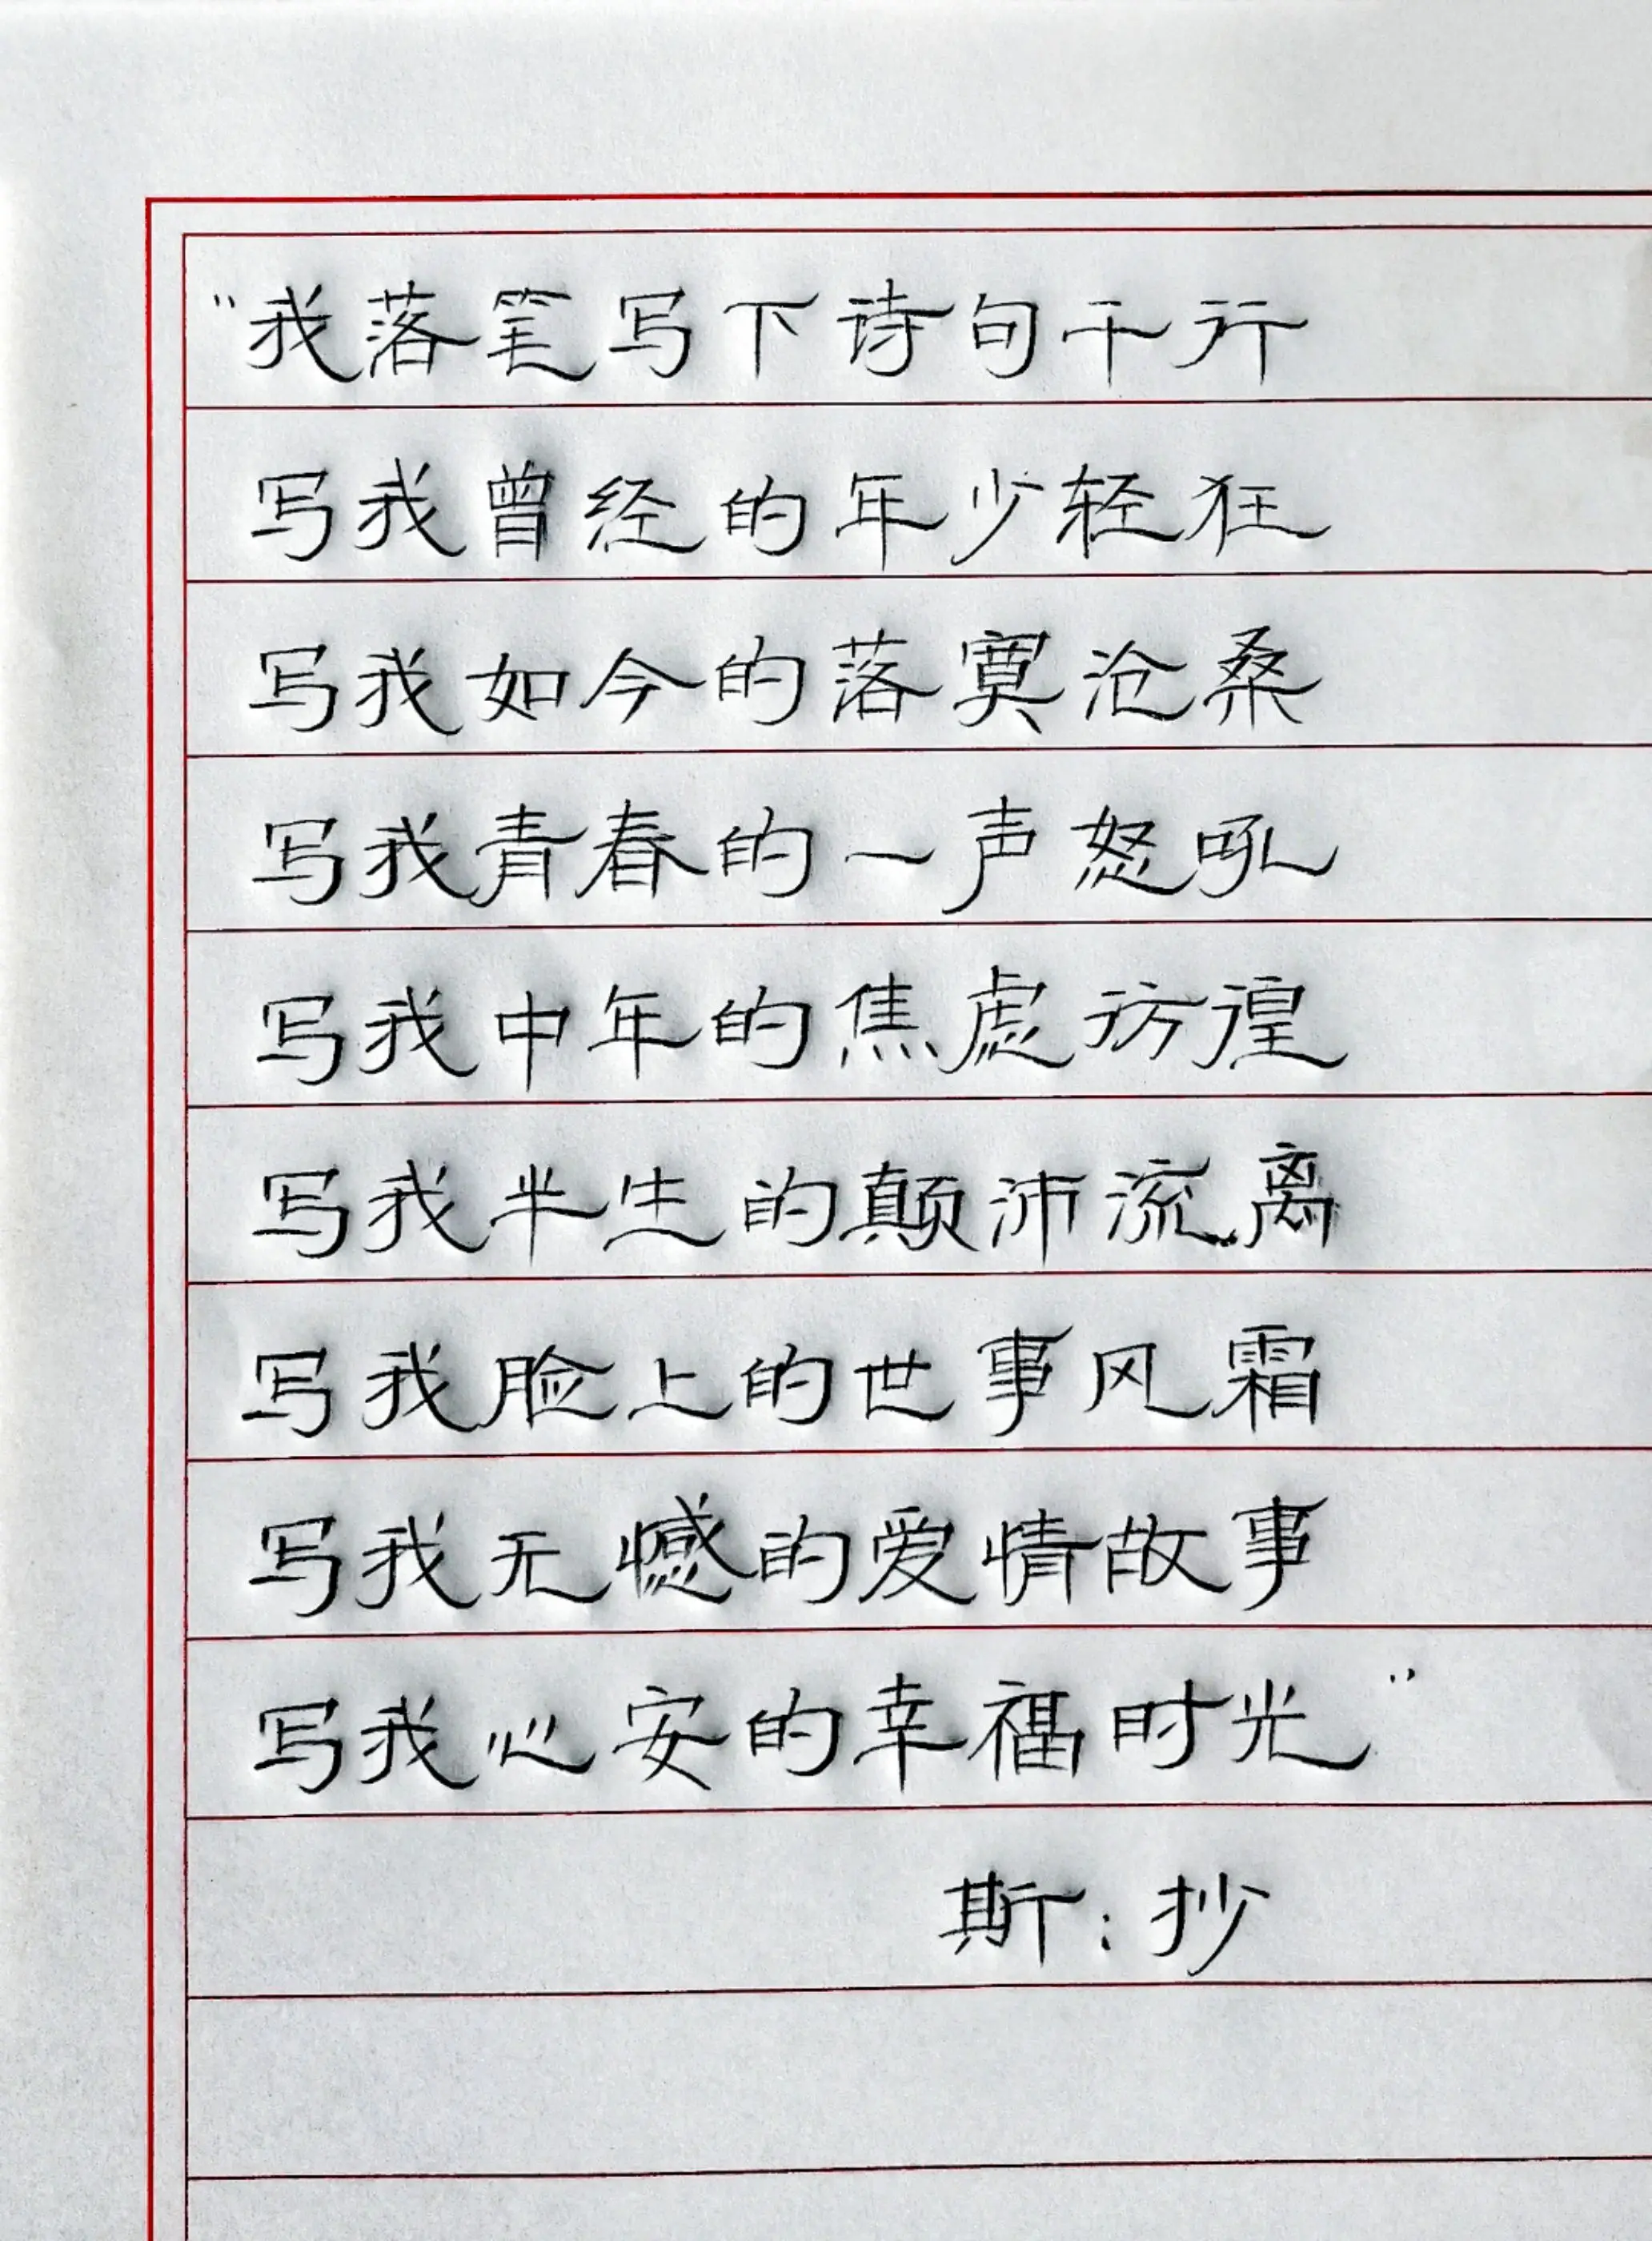 “我落笔写下诗句千行
写我曾经的年少轻狂
写我如今的落寞沧桑
写我青春的一声怒吼
写我中年的焦虑彷徨
写我半生的颠沛流离
写我脸上的世事风霜
写我无憾的爱情故事
写我心安的幸福时光”
斯：抄